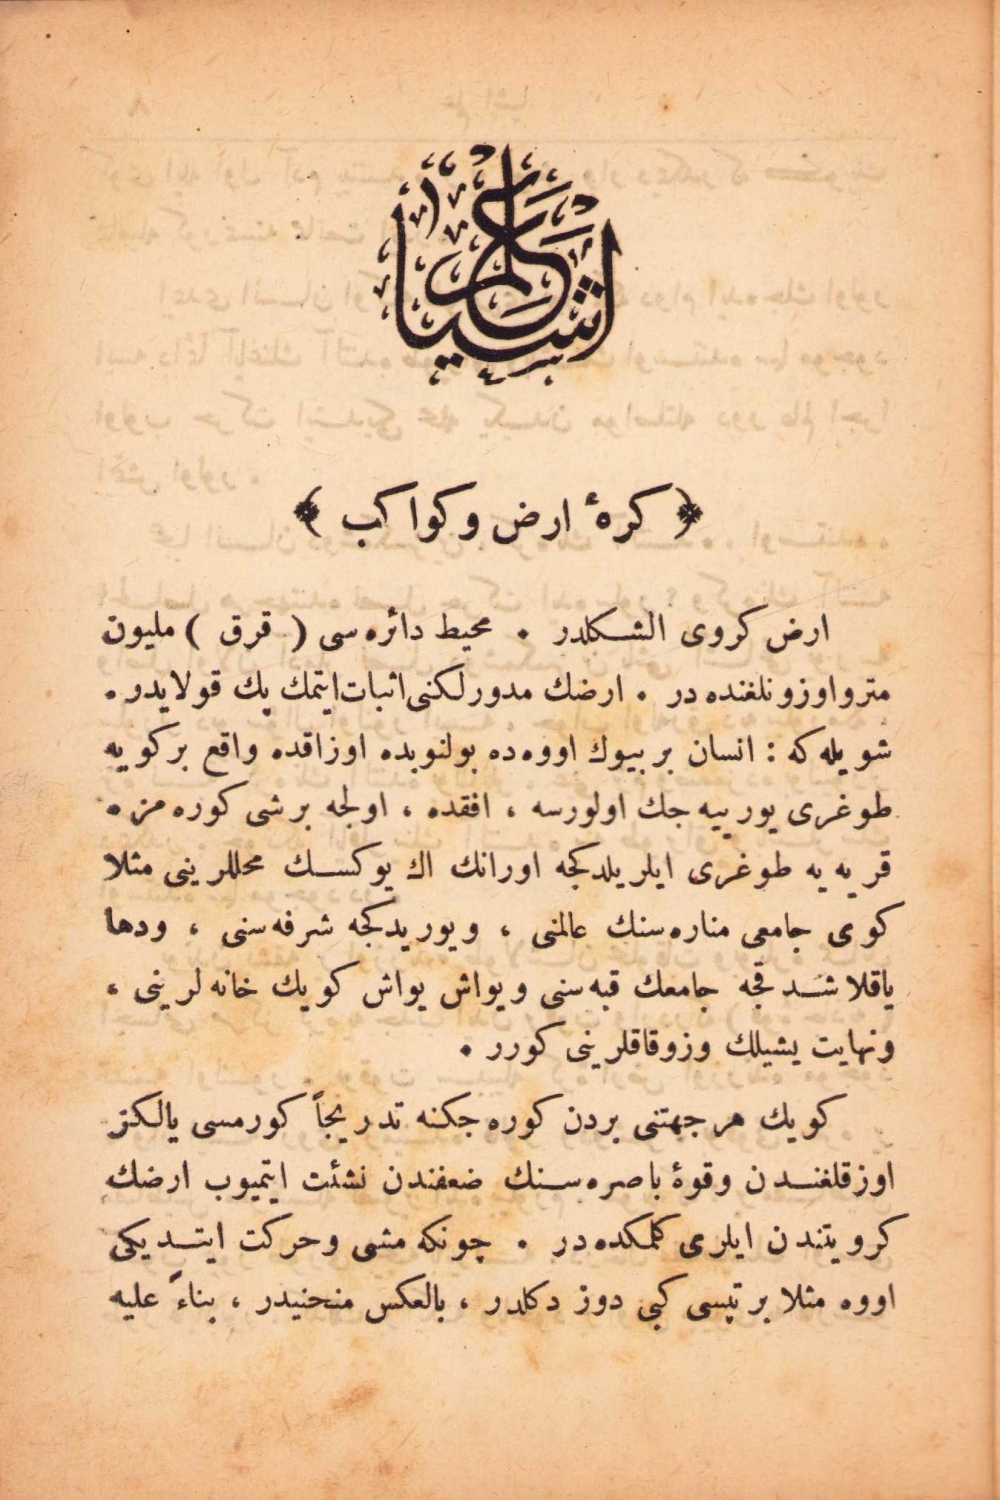 علم اشيا
﴿ كرهٔ ارض و كواكب ﴾
ارض كروى الشكلدر . محيط دائره سى ( قرق ) مليون
مترو اوزونلغنده در . ارضك مدور لكنى اثبات ايتمك پك قولايدر .
شويله كه : انسان بر بيوك اووه ده بولنوبده اوزاقده واقع بر كويه
طوغرى يورييه جك اولورسه ، افقده ، اولجه برشى كوره مز .
قريه يه طوغرى ايلريلدكجه اورانك اك يوكسك محللرينى مثلا
كوى جامعى مناره سنك عالمنى ، و يوريدكجه شرفه سنى ، ودها
ياقلاشدقجه جامعك قبه سنى و يواش يواش كويك خانه لرينى ،
ونهايت يشيللك وزوقاقلرينى كورر .
كويك هر جهتنى بردن كوره جكنه تدريجاً كورمسى يالكز
اوزقلغندن وقوهٔ باصره سنك ضعفندن نشئت ايتميوب ارضك
كرويتندن ايلرى كلمكده در . چونكه مشى وحركت ايتديكى
اووه مثلا بر تپسى كبى دوز دكلدر ، بالعكس منحنيدر ، بناءً عليه